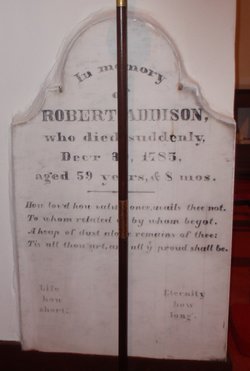 In memory
of
ROBERT ADDISON,
who died suddenly,
Decr 1785,
aged 59 years, & 8 mos.
How lov'd how valu'd once, avails thee not.
To whom related or by whom begot.
A heap of dust alone remains of thee:
Tis all thou art, and all ye proud shall be.
Life
how
short;
Eternity
how
long.